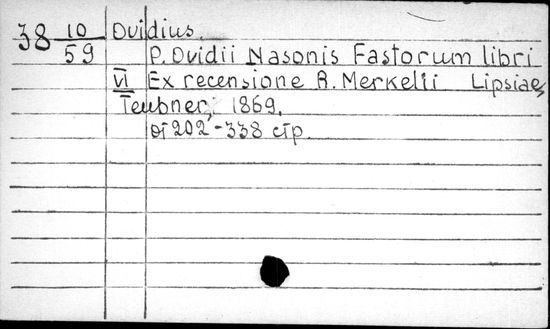 38 10/59 Ovidius.
P. Ovidii Nasonis Fastorum libri
VI Ex recensione R. Merkelii Lipsiae,
Teubner, 1869.
от 202-338 стр.